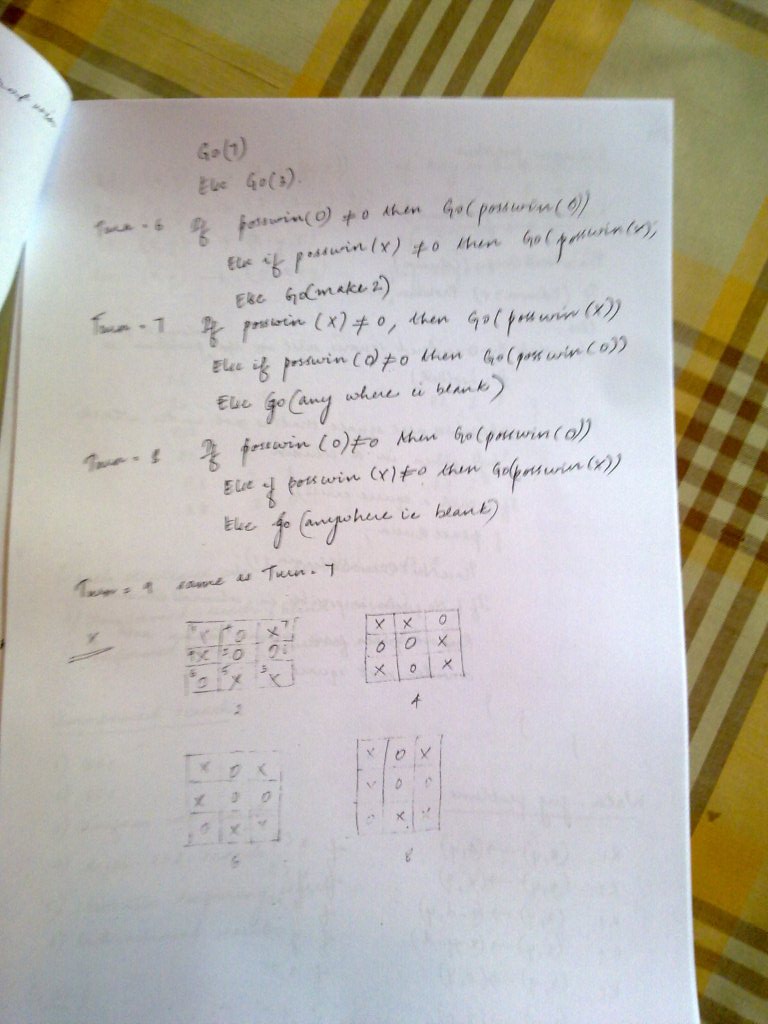 Go(7)
Else Go(3).
Turn = 6 If posswin(0) ≠ 0 then Go(posswin(0))
Else if posswin(x) ≠ 0 then Go(posswin(x),
Else Go(make2)
Turn = 7 If posswin (X) ≠ 0, then Go(posswin(X))
Else if posswin (0) ≠ 0 then Go(posswin(0))
Else Go(any where is blank)
Turn = 8 If posswin (0) ≠ 0 then Go(posswin(0))
Else if posswin (X) ≠ 0 then Go(posswin(X))
Else Go (anywhere is blank)
Turn = 9 same as Turn = 7
X
X O X
X O O
O X X
2
X X O
O O X
X O X
4
X O X
X O O
O X X
6
X O X
X O O
O X X
8